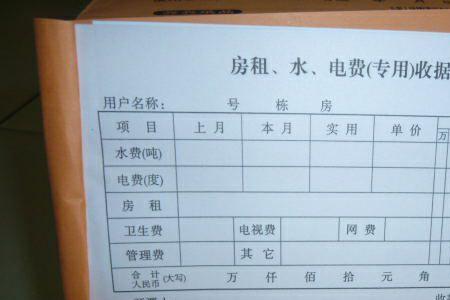 房租、水、电费(专用)收据
用户名称： 号 栋 房
项 目 上 月 本 月 实 用 单 价 万
水费(吨)
电费(度)
房 租
卫生费 电视费 网 费
管理费 其 它
合 计 人民币 (大写) 万 仟 佰 拾 元 角